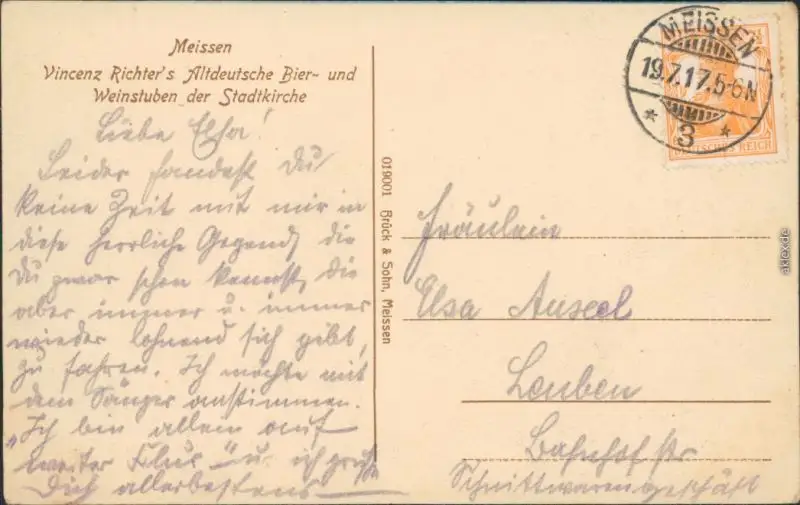 Meissen
Vincenz Richter's Altdeutsche Bier- und
Weinstuben der Stadtkirche
Liebe Elsa!
Leider fandest Du
keine Zeit mit mir in
diese herrliche Gegend, die
Du zwar schon kennst, die
aber immer u. immer
wieder lohnend sich gibt,
zu fahren. Ich möchte mit
dem Sänger anstimmen.
"Ich bin allein auf
weiter Flur" u. ich grüße
Dich allerbestens
019001 Brück & Sohn, Meissen
MEISSEN
19.7.17.5-6N
* 3 *
DEUTSCHES REICH
Fräulein
Elsa
Leuben
Bahnhofstr
Schnittwarengeschäft
akpool.de